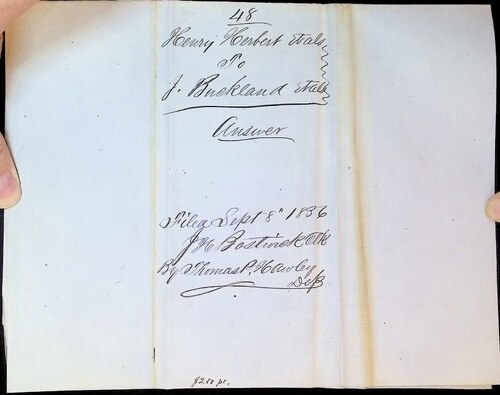 48
Henry Herbert et als
To
J. Buckland et als
Answer
Filed Sept 8" 1836
J H Bostwick Clk
By Thomas P. Hawley
Dep
$2.50 pr.